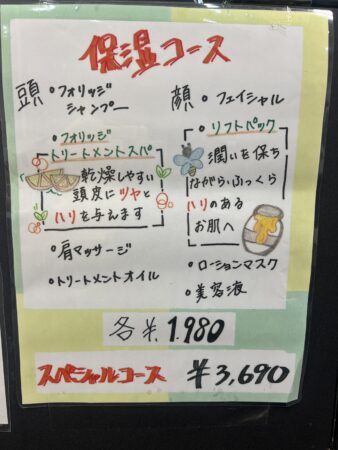 保湿コース
頭 ・フォリッジ
シャンプー
・フォリッジ
トリートメントスパ
乾燥しやすい
頭皮にツヤと
ハリを与えます
・肩マッサージ
・トリートメントオイル
顔 ・フェイシャル
・リフトパック
潤いを保ち
ながら、ふっくら
ハリのある
お肌へ
・ローションマスク
・美容液
各¥1,980
スペシャルコース ¥3,690